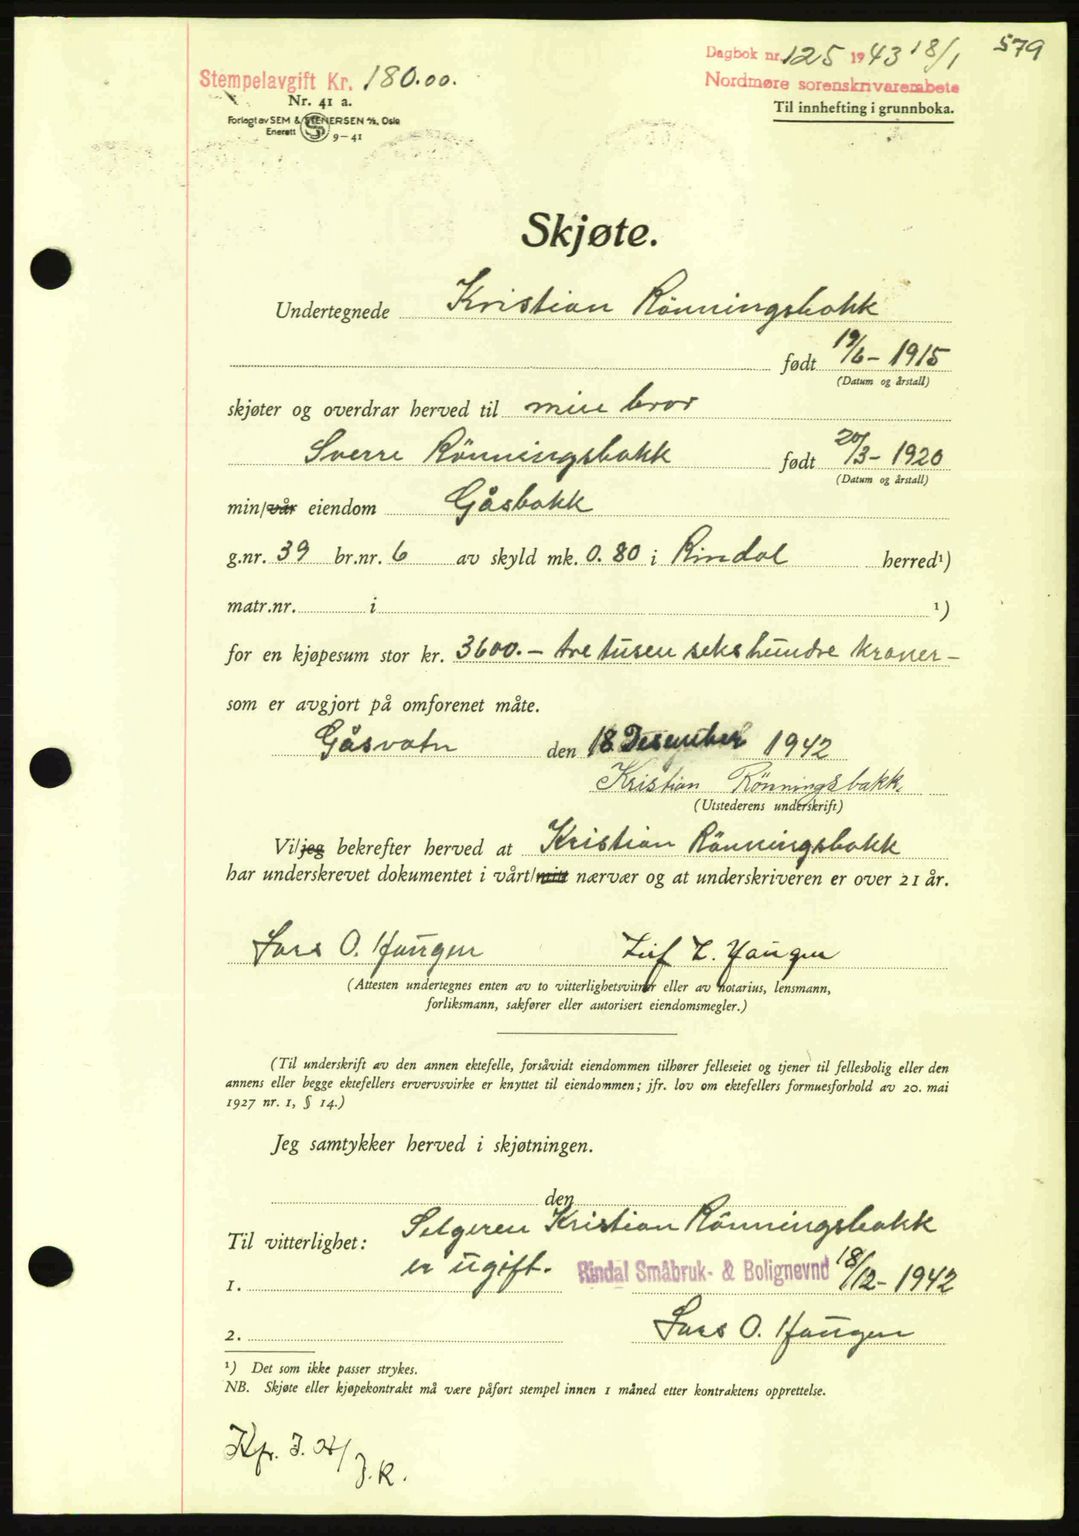 579
Dagbok nr. 125 1943 18/1
Stempelavgift Kr. 180.00.
Nordmøre sorenskriverembete
Nr. 41 a.
Til innhefting i grunnboka.
Forlagt av SEM & STENERSEN A/S, Oslo
Enerett 9-41
Skjøte.
Undertegnede Kristian Rönningsbakk
født 19/6 - 1915
(Datum og årstall)
skjøter og overdrar herved til min bror
Sverre Rönningsbakk født 20/3 - 1920
(Datum og årstall)
min/vår eiendom Gåsbakk
g.nr. 39 br.nr. 6 av skyld mk. 0.80 i Rindal herred¹)
matr.nr. i ¹)
for en kjøpesum stor kr. 3600.- tre tusen sekshundre kroner-
som er avgjort på omforenet måte.
Gåsvatn den 18 Desember 1942
Kristian Rönningsbakk.
(Utstederens underskrift)
Vi/jeg bekrefter herved at Kristian Rönningsbakk
har underskrevet dokumentet i vårt/mitt nærvær og at underskriveren er over 21 år.
Lars O. Haugen Leif L. Haugen
(Attesten undertegnes enten av to vitterlighetsvitner eller av notarius, lensmann,
forliksmann, sakfører eller autorisert eiendomsmegler.)
(Til underskrift av den annen ektefelle, forsåvidt eiendommen tilhører felleseiet og tjener til fellesbolig eller den
annens eller begge ektefellers ervervsvirke er knyttet til eiendommen; jfr. lov om ektefellers formuesforhold av 20. mai
1927 nr. 1, § 14.)
Jeg samtykker herved i skjøtningen.
den
Til vitterlighet: Selgeren Kristian Rönningsbakk
er ugift. Rindal Småbruk- & Bolignevnd 18/12-1942
1.
2. Lars O. Haugen
¹) Det som ikke passer strykes.
NB. Skjøte eller kjøpekontrakt må være påført stempel innen 1 måned etter kontraktens opprettelse.
Kfr. J. H/
J.R.